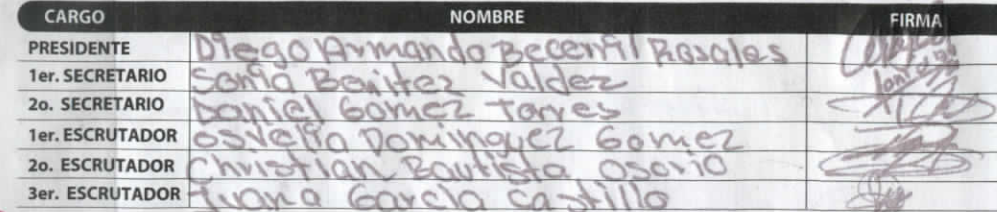 CARGO NOMBRE FIRMA
PRESIDENTE Diego Armando Becerril Rosales
1er. SECRETARIO Sonia Benitez Valdez
2o. SECRETARIO Daniel Gomez Torres
1er. ESCRUTADOR Osvelia Dominguez Gomez
2o. ESCRUTADOR Christian Bautista Osorio
3er. ESCRUTADOR Juana Garcia Castillo